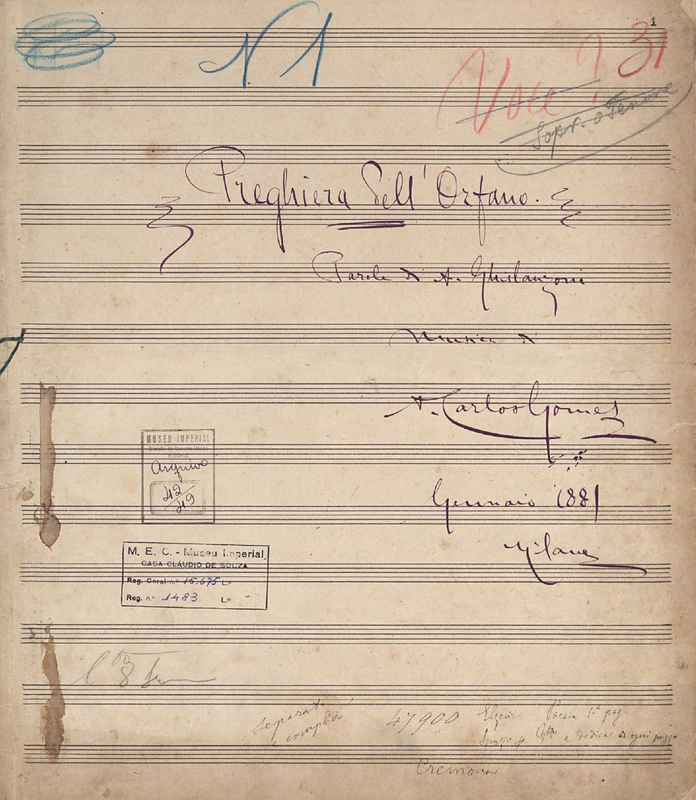 1
N. 1
31
Voce ?
Sopr. o Tenore
Preghiera dell' Orfano.
Parole di A. Ghislanzoni
Musica di
A. Carlos Gomes
Gennaio 1881
Milano
MUSEU IMPERIAL
Arquivo
42
49
M. E. C. - Museu Imperial
CASA CLÁUDIO DE SOUZA
Reg. Geral n.º 15.675 L.º
Reg. n.º 1483 L.º
8
separat
completo
47900
Poesia 1ª pag
e dedica ad ogni pezzo
Cremona